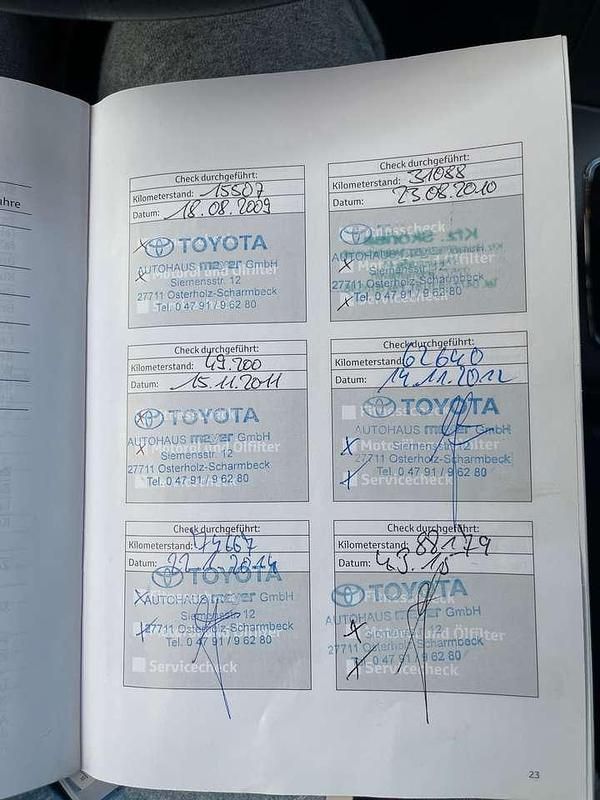 ahre
Check durchgeführt:
Kilometerstand: 15507
Datum: 18.08.2009
TOYOTA
AUTOHAUS meyer GmbH
Motoröl und Ölfilter
Siemensstr. 12
27711 Osterholz-Scharmbeck
Tel. 0 47 91 / 9 62 80
Check durchgeführt:
Kilometerstand: 31088
Datum: 23.08.2010
Siemensstr. 12
27711 Osterholz-Scharmbeck
Tel. 0 47 91 / 9 62 80
Check durchgeführt:
Kilometerstand: 49.200
Datum: 15.11.2011
TOYOTA
AUTOHAUS meyer GmbH
Motoröl und Ölfilter
Siemensstr. 12
27711 Osterholz-Scharmbeck
Tel. 0 47 91 / 9 62 80
Check durchgeführt:
Kilometerstand: 62640
Datum: 14.11.2012
TOYOTA
AUTOHAUS meyer GmbH
Siemensstr. 12
27711 Osterholz-Scharmbeck
Tel. 0 47 91 / 9 62 80
Servicecheck
Check durchgeführt:
Kilometerstand: 74667
Datum: 22.1.2014
TOYOTA
AUTOHAUS meyer GmbH
Siemensstr. 12
27711 Osterholz-Scharmbeck
Tel. 0 47 91 / 9 62 80
Servicecheck
Check durchgeführt:
Kilometerstand: 88179
Datum: 4.3.15
TOYOTA
AUTOHAUS meyer GmbH
Siemensstr. 12
Motoröl und Ölfilter
27711 Osterholz-Scharmbeck
Tel. 0 47 91 / 9 62 80
Servicecheck
23